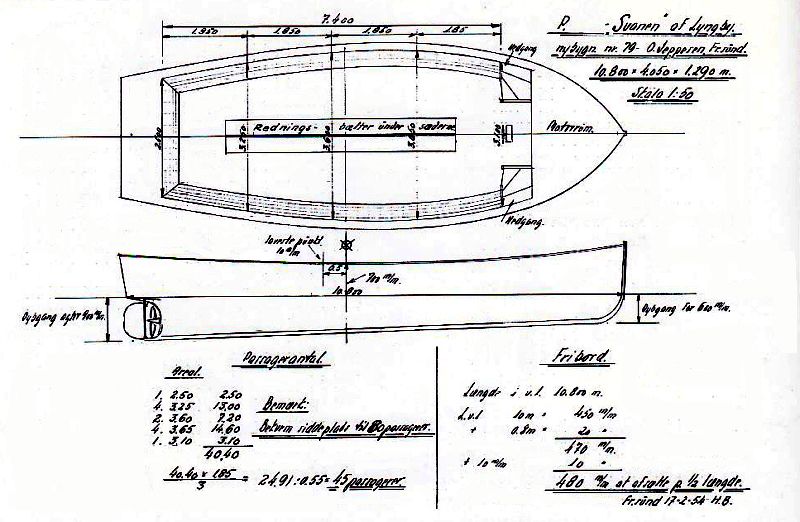 P. - "Svanen" af Lyngby.
nybygn. nr. 79 - O. Jeppesen, Fr.sund.
10.800 × 4.050 × 1.290 m.
Skala 1:50
7.400
1.850 1.850 1.850 1.85
Nedgang
2.500
Rednings- bælter under sæderne
3.250
3.600
3.650
3.100
Motorrum.
Nedgang.
laveste punkt
10 m/m
0.5
700 m/m.
10.800
Dybgang agter 900 m/m.
Dybgang for 600 m/m.
Passagerantal.
Areal.
1. 2.50 2.50
4. 3.25 13.00
2. 3.60 7.20
4. 3.65 14.60
1. 3.10 3.10
40.40
Bemærk:
Bekvem siddeplads til passagerer.
40.40 × 1.85
3
= 24.91 : 0.55 = 45 passagerer.
Fribord.
Længde i v.l. 10.800 m.
L.v.l 10 m = 450 m/m
+ 0.8 m = 20 "
470 m/m.
+ 10 m/m 10 "
480 m/m at afsætte p. ½ længde.
Fr.sund 17-2-54 H.B.